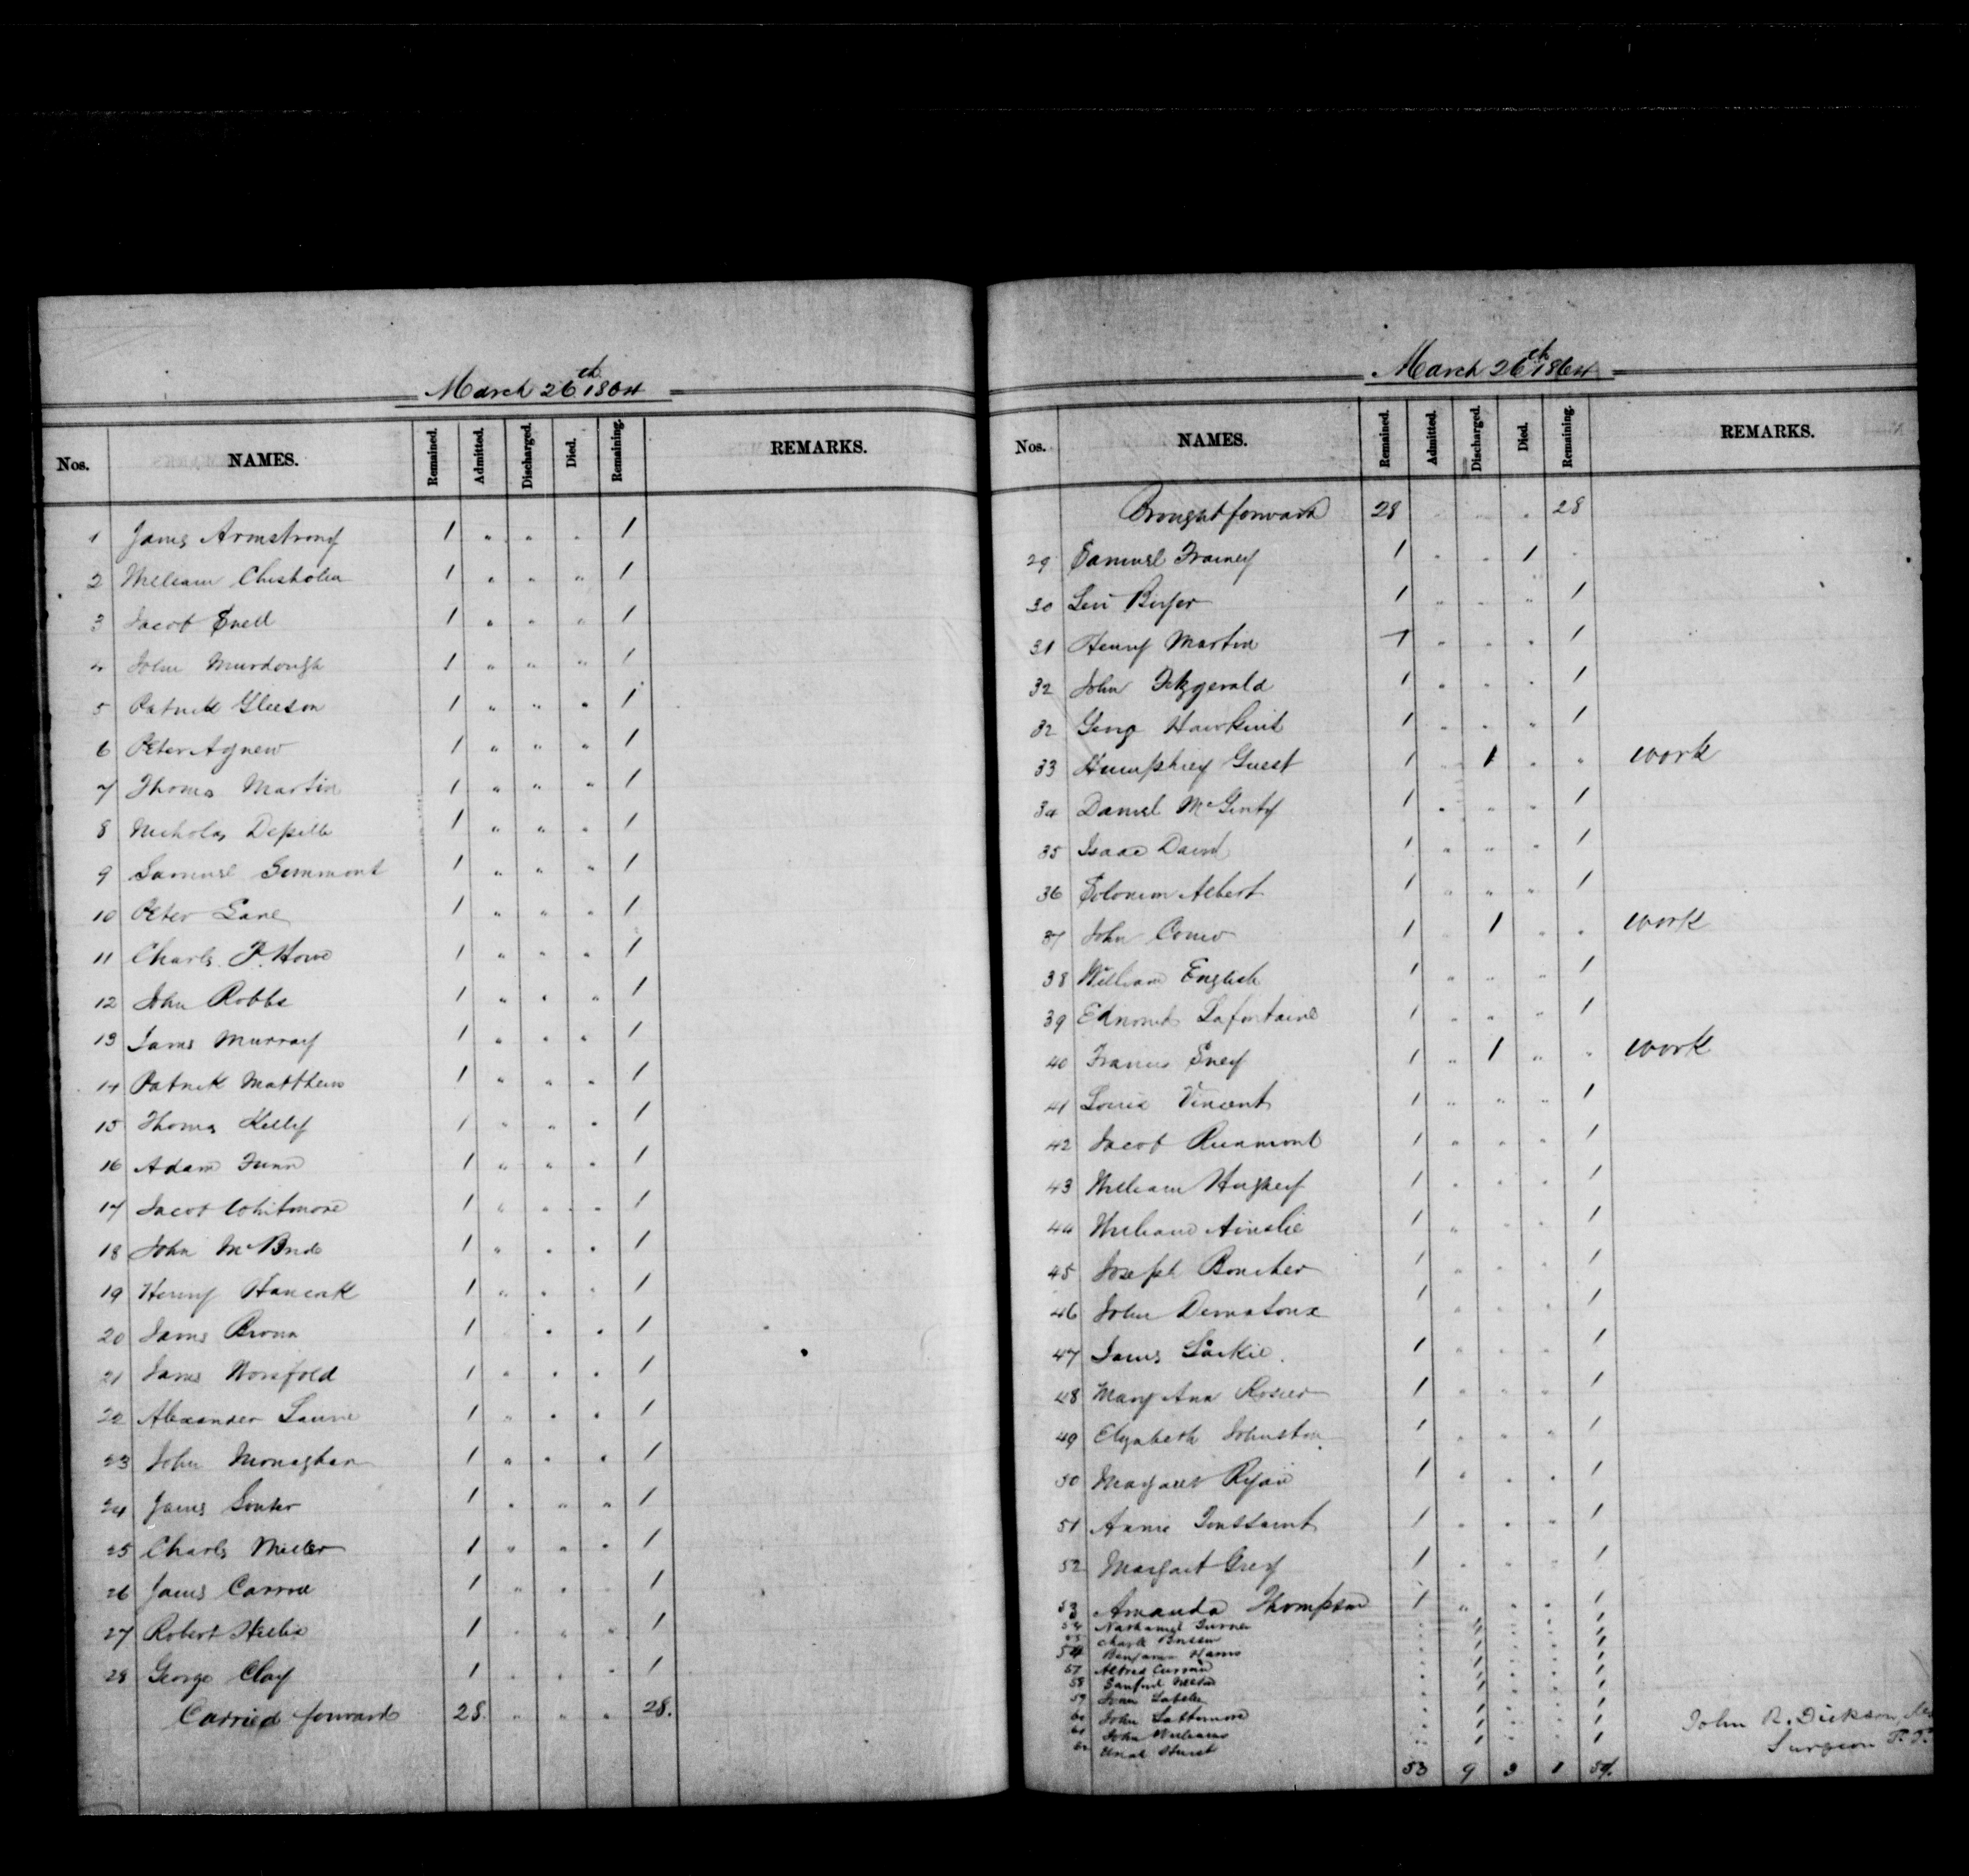 March 26th 1864
Nos. NAMES. Remained. Admitted. Discharged. Died. Remaining. REMARKS.
1 James Armstrong 1 " " " 1
2 William Chisholm 1 " " " 1
3 Jacob Snell 1 " " " 1
4 John Murdough 1 " " " 1
5 Patrick Gleeson 1 " " " 1
6 Peter Agnew 1 " " " 1
7 Thomas Martin 1 " " " 1
8 Nicholas 1 " " " 1
9 Samuel 1 " " " 1
10 Peter Lane 1 " " " 1
11 Charles P. Howe 1 " " " 1
12 John Robbs 1 " " " 1
13 James Murray 1 " " " 1
14 Patrick Matthews 1 " " " 1
15 Thomas Kelly 1 " " " 1
16 Adam 1 " " " 1
17 Jacob Whitmore 1 " " " 1
18 John McBride 1 " " " 1
19 Henry Hancock 1 " " " 1
20 James Brown 1 " " 1
21 James Worsfold 1 " " " 1
22 Alexander Laurie 1 " " " 1
23 John Monaghan 1 " " " 1
24 James Souter 1 " " " 1
25 Charles Miller 1 " " " 1
26 James Carroll 1 " " 1
27 Robert 1 " " " 1
28 George Clay 1 " " " 1
Carried forward 28. " " " 28.
March 26th 1864
Nos. NAMES. Remained. Admitted. Discharged. Died. Remaining. REMARKS.
Brought forward 28 " " " 28
29 Samuel Trainey 1 " " 1 "
30 Levi 1 " " " 1
31 Henry Martin 1 " " " 1
32 John Fitzgerald 1 " " " 1
32 George Hawkins 1 " " " 1
33 Humphrey Guest 1 " 1 " " work
34 Daniel McGinty 1 " " " 1
35 Isaac David 1 " " " 1
36 Solomon Albert 1 " " " 1
37 John 1 " 1 " " work
38 William English 1 " " " 1
39 Edmond Lafontaine 1 " " " 1
40 Francis 1 " 1 " " work
41 Louis Vincent 1 " " " 1
42 Jacob 1 " " " 1
43 William Hughey 1 " " " 1
44 William Ainslie 1 " " " 1
45 Joseph Boucher 1 " " " 1
46 John 1 " " " 1
47 James Lackie. 1 " " " 1
48 Mary Ann Rosier 1 " " " 1
49 Elizabeth Johnston 1 " " " 1
50 Margaret Ryan 1 " " " 1
51 Annie Toussaint 1 " " " 1
52 Margaret Grey 1 " " " 1
53 Amanda Thompson 1 " " " 1
54 Nathaniel Turner " 1 " " 1
55 Charles " 1 " " 1
Benjamin Harris " 1 " " 1
57 Alfred Curran " 1 " " 1
58 Sanford " 1 " " 1
59 " 1 " " 1
60 John Lattemore " 1 " " 1
61 John Williams " 1 " " 1
62 " 1 " " 1
53 9 3 1 58.
John R. Dickson
Surgeon P. P.